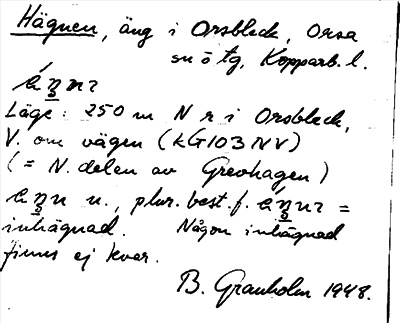 Hägnen, äng i Orsbleck, Orsa
sn o tg, Kopparb. l.
Läge: 250 m N r i Orsbleck,
V. om vägen (kG103NV)
(= N. delen av Grevhagen)
n., plur. best. f. =
inhägnad. Någon inhägnad
finns ej kvar.
B. Granholm 1948.